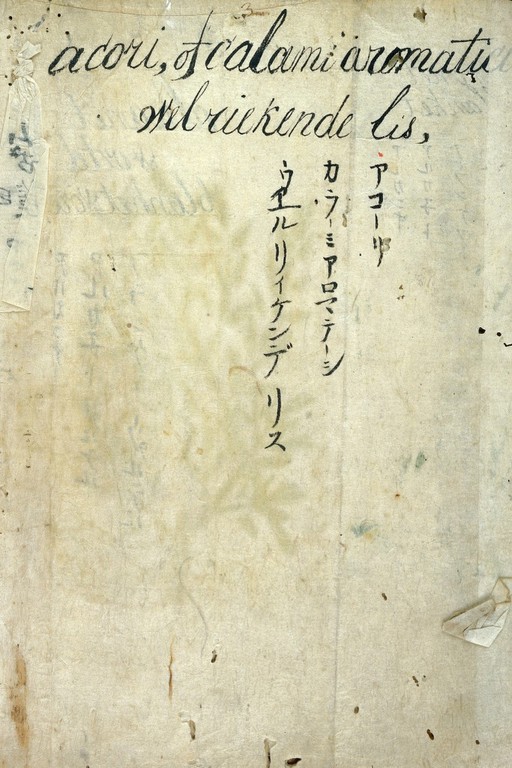 acori, of calami aromatici
welriekende lis,
アコーリ
カラーミアロマテーシ
ウヱルリイケンデリス